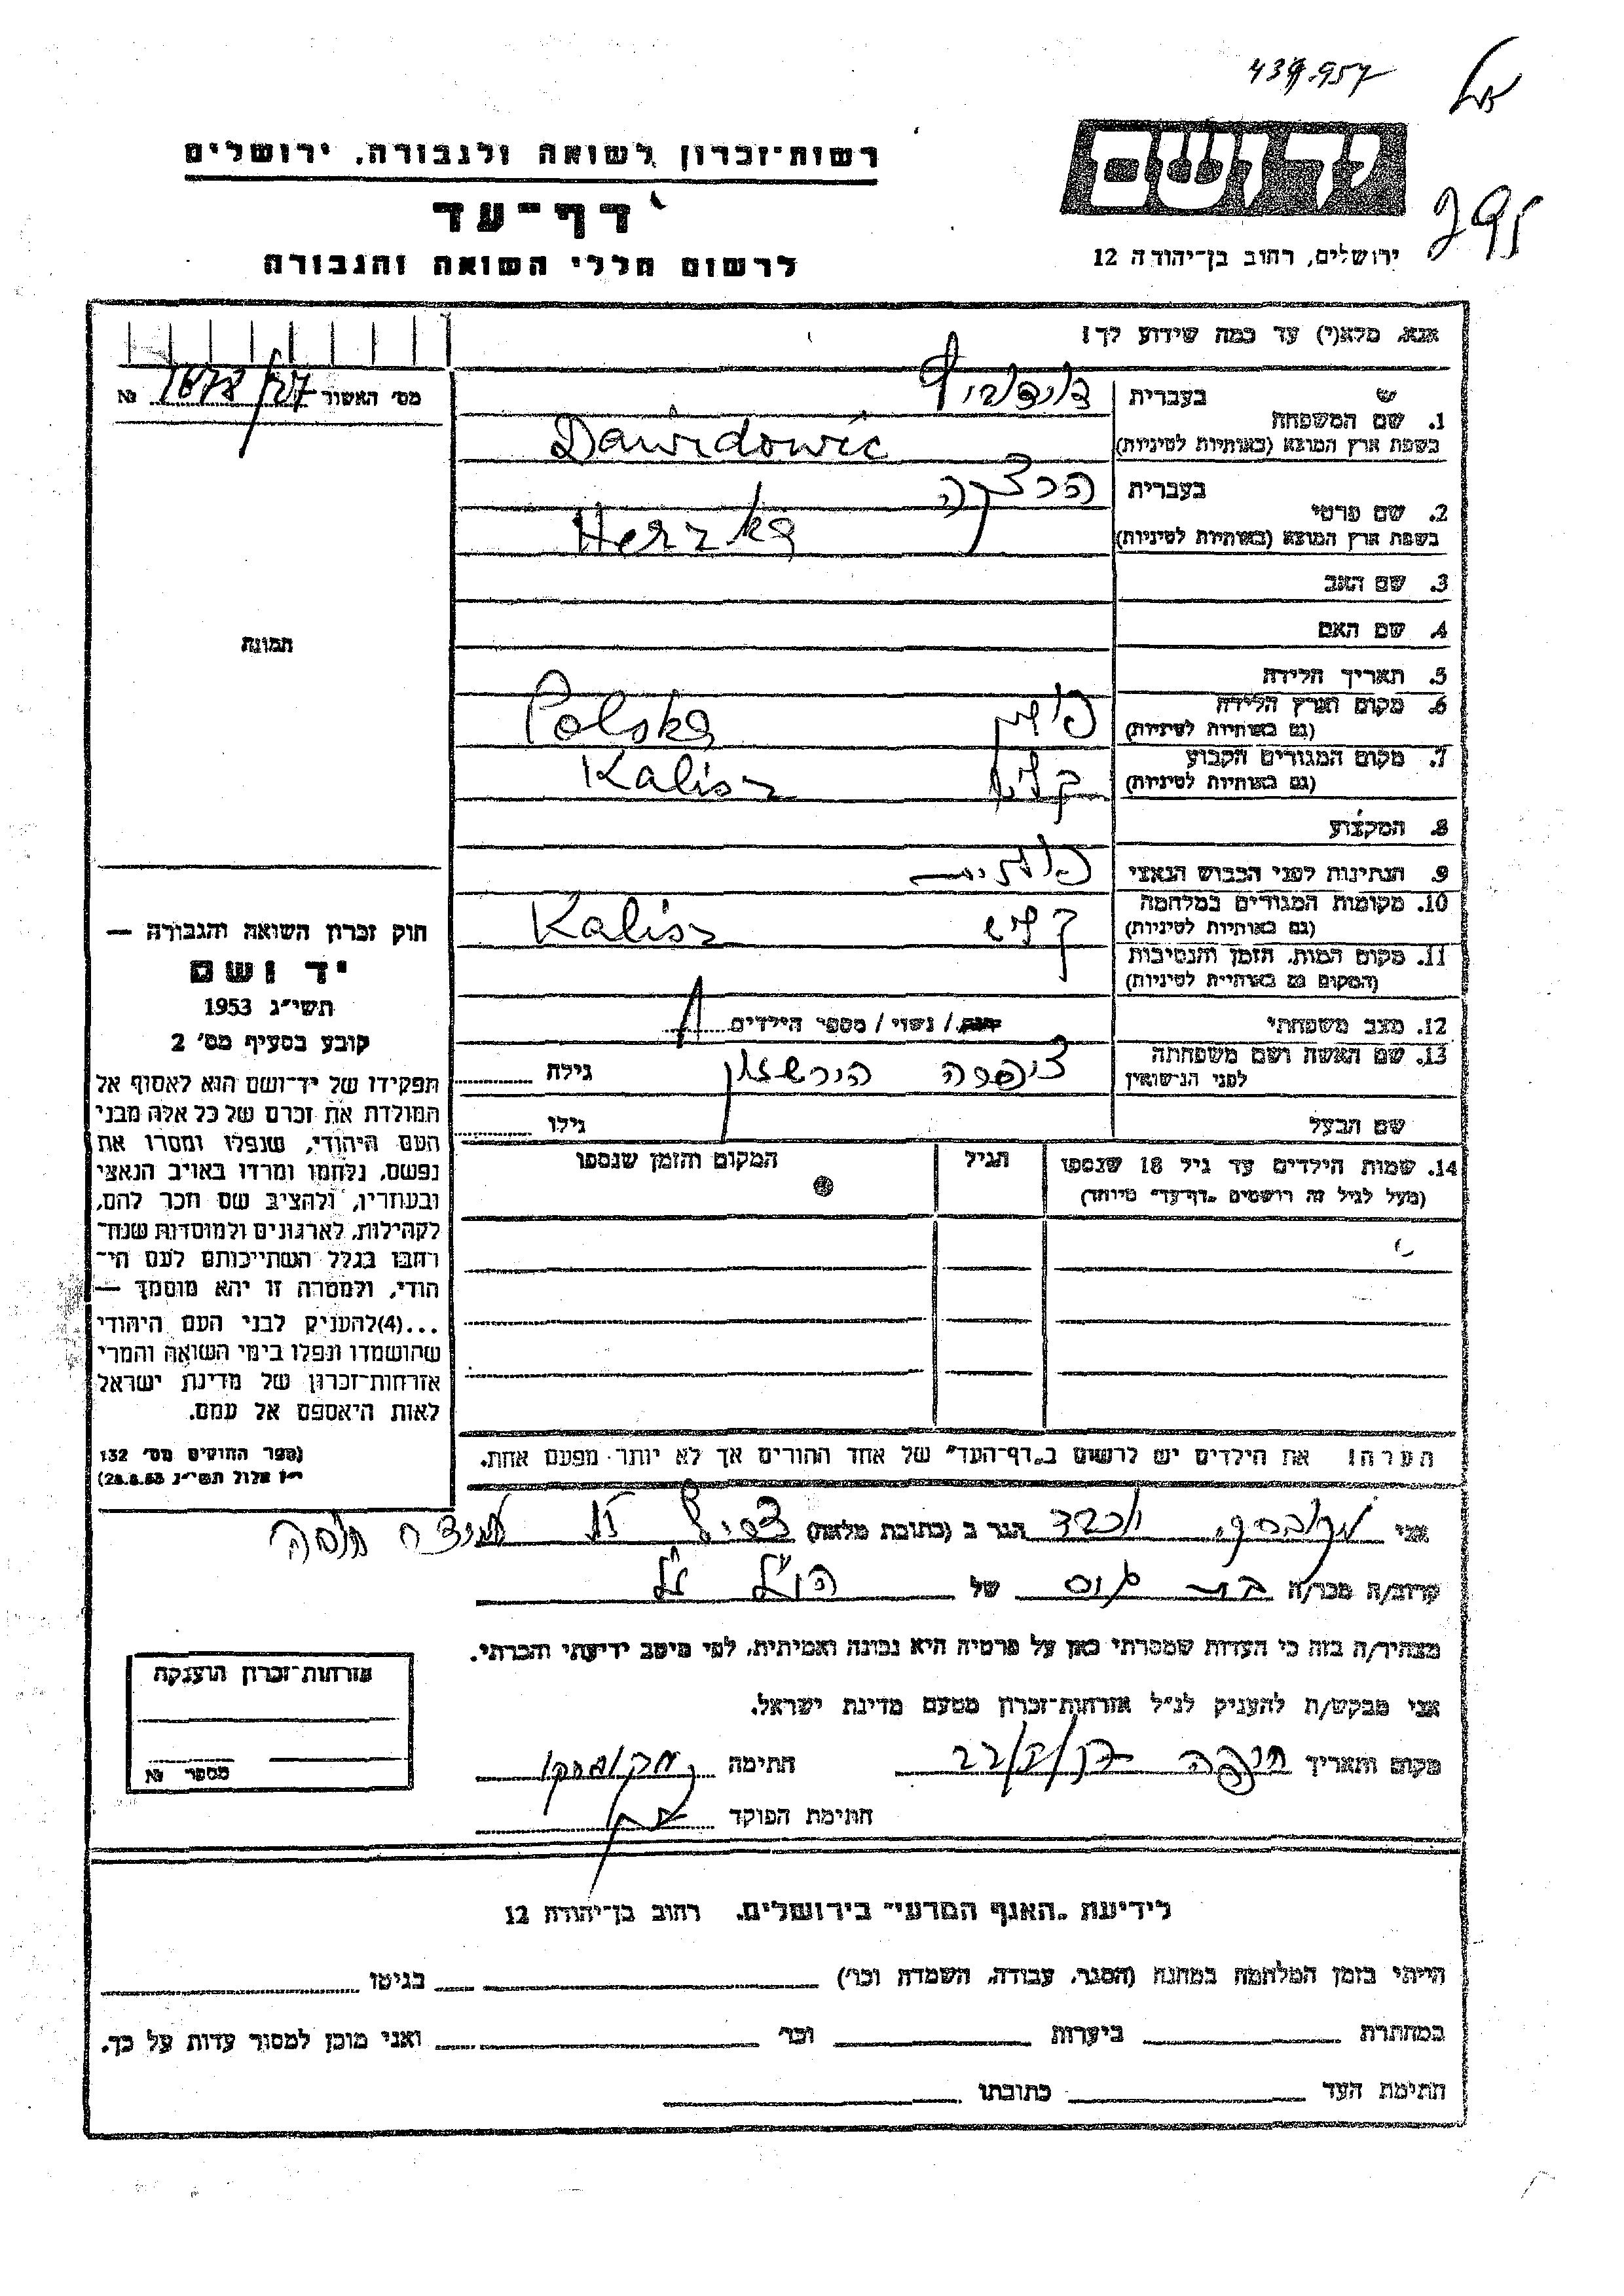 439.957
רשות־זכרון לשואה ולגבורה, ירושלים
יד ושם
דף־עד
295
ירושלים, רחוב בן־יהודה 12
לרשום חללי השואה והגבורה
אנא, מלא(י) עד כמה שידוע לך!
מס' האשור 1678/27 №
1. שם המשפחה
בעברית
בשפת ארץ המוצא (באותיות לטיניות) Dawidowic
2. שם פרטי
בעברית הרצקה
בשפת ארץ המוצא (באותיות לטיניות) Herzka
3. שם האב
4. שם האם
תמונה
5. תאריך הלידה
6. מקום וארץ הלידה
(גם באותיות לטיניות) פולין Polska
7. מקום המגורים הקבוע
(גם באותיות לטיניות) קליש Kalisz
8. המקצוע
9. הנתינות לפני הכבוש הנאצי פולנית
10. מקומות המגורים במלחמה
(גם באותיות לטיניות) קליש Kalisz
11. מקום המות, הזמן והנסיבות
(המקום גם באותיות לטיניות)
12. מצב משפחתי רווק / נשוי / מספר הילדים
13. שם האשה ושם משפחתה
לפני הנישואין ציפורה גילה
שם הבעל גילו
14. שמות הילדים עד גיל 18 שנספו
(מעל לגיל זה רושמים "דף־עד" מיוחד)
הגיל
המקום והזמן שנספו
הערה! את הילדים יש לרשום ב"דף־העד" של אחד ההורים אך לא יותר מפעם אחת.
חוק זכרון השואה והגבורה —
יד ושם
תשי"ג 1953
קובע בסעיף מס' 2
תפקידו של יד־ושם הוא לאסוף אל
המולדת את זכרם של כל אלה מבני
העם היהודי, שנפלו ומסרו את
נפשם, נלחמו ומרדו באויב הנאצי
ובעוזריו, ולהציב שם וזכר להם,
לקהילות, לארגונים ולמוסדות שנח־
רבו בגלל השתייכותם לעם הי־
הודי, ולמטרה זו יהא מוסמך —
...(4)להעניק לבני העם היהודי
שהושמדו ונפלו בימי השואה והמרי
אזרחות־זכרון של מדינת ישראל
לאות היאספם אל עמם.
(ספר החוקים מס' 132
י"ז אלול תשי"ג 28.8.53)
אני יוכבד הגר ב (כתובת מלאה)
קרוב/ה מכר/ה של הנ"ל
מצהיר/ה בזה כי העדות שמסרתי כאן על פרטיה היא נכונה ואמיתית, לפי מיטב ידיעתי והכרתי.
אני מבקש/ת להעניק לנ"ל אזרחות־זכרון מטעם מדינת ישראל.
מקום ותאריך חיפה חתימה
חתימת הפוקד
אזרחות־זכרון הוענקה
מספר №
לידיעת "האגף המדעי" בירושלים, רחוב בן־יהודה 12
הייתי בזמן המלחמה במחנה (הסגר, עבודה, השמדה וכו') בגיטו
במחתרת ביערות וכו' ואני מוכן למסור עדות על כך.
חתימת העד כתובתו